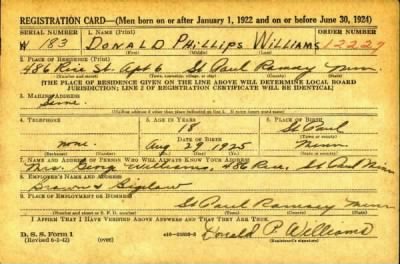 REGISTRATION CARD—(Men born on or after January 1, 1922 and on or before June 30, 1924)
SERIAL NUMBER 1. NAME (Print) ORDER NUMBER
W 183 DONALD PHILLIPS WILLIAMS 12227
2. PLACE OF RESIDENCE (Print)
486 Rice St. Apt 6 St Paul Ramsey Minn
(THE PLACE OF RESIDENCE GIVEN ON THE LINE ABOVE WILL DETERMINE LOCAL BOARD
JURISDICTION; LINE 2 OF REGISTRATION CERTIFICATE WILL BE IDENTICAL)
3. MAILING ADDRESS
Same
4. TELEPHONE 5. AGE IN YEARS 6. PLACE OF BIRTH
18 St Paul
DATE OF BIRTH
none Aug 29 1925 Minn
7. NAME AND ADDRESS OF PERSON WHO WILL ALWAYS KNOW YOUR ADDRESS
Mrs. Williams, 486 Rice, St Paul Minn
8. EMPLOYER'S NAME AND ADDRESS
Brown & Bigelow
9. PLACE OF EMPLOYMENT OR BUSINESS
St Paul Ramsey Minn
I AFFIRM THAT I HAVE VERIFIED ABOVE ANSWERS AND THAT THEY ARE TRUE.
D. S. S. Form 1
(Revised 6-9-42) (over)
Donald P. Williams
(Registrant's signature)